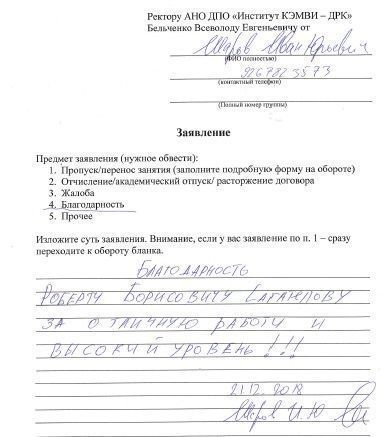 Ректору АНО ДПО «Институт КЭМВИ – ДРК»
Бельченко Всеволоду Евгеньевичу от
Шаров Иван Юрьевич
(ФИО полностью)
9267823573
(контактный телефон)
(Полный номер группы)
Заявление
Предмет заявления (нужное обвести):
1. Пропуск/перенос занятия (заполните подробную форму на обороте)
2. Отчисление/академический отпуск/ расторжение договора
3. Жалоба
4. Благодарность
5. Прочее
Изложите суть заявления. Внимание, если у вас заявление по п. 1 – сразу
переходите к обороту бланка.
БЛАГОДАРНОСТЬ
РОБЕРТУ БОРИСОВИЧУ
ЗА ОТЛИЧНУЮ РАБОТУ И
ВЫСОКИЙ УРОВЕНЬ!!!
21.12.2018
Шаров И.Ю